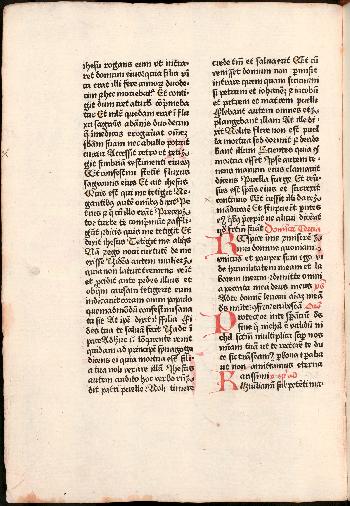 ihesu rogans eum ut intra-
ret domum
erat illi fere annorum duode-
cim & hec moriebatur Et conti-
git dum iret a turba comprimeba-
tur Et mulier quedam erat in flu-
xu sanguinis ab annis duode-
que in medicos erogaverat omnem
suam nec ab ullo potuit
curari Accessit retro et teti-
git fimbriam vestimenti eius
Et confestim stetit fluxus
sanguinis eius Et ait ihesus
Quis est qui me tetigit Ne-
gantibus autem omnibus dixit Pe-
trus & qui cum illo erant Precep-
tor turbe te comprimunt & affli-
gunt & dicis quis me tetigit Et
dixit ihesus Tetigit me aliquis
Nam & ego novi virtutem de me
exisse Videns autem mulier
quia non latuit tremens venit
et procidit ante pedes illius et
ob quam causam tetigerit eum
indicavit coram omni populo
quemadmodum confestim sana-
ta sit At ipse dixit ei Filia fi-
des tua te salvam fecit Vade in
pace Adhuc eo loquente venit
quidam ad principem synagoge
dicens ei quia mortua est fili-
a tua noli vexare illum Ihesus
autem audito hoc verbo
dit patri puelle Noli timere
crede tantum et salva erit Et cum
venisset domum non permisit
intrare quemquam secum ni-
si petrum et iohannem & iacobum
et patrem et matrem puelle
Flebant autem omnes et
plangebant illam At ille di-
xit Nolite flere non est puel-
la mortua sed dormit & deride-
bant illum Scientes quia
mortua esset Ipse autem te-
nens manum eius clamavit
dicens Puella surge Et rever-
sus est spiritus eius et surrexit
continuo Et iussit illi dari
manducare Et stupuerunt parentes
eius quibus precepit ne alicui dicerent
quod factum fuerat Dominica tercia
Respice in me & miserere
mei domine quoniam
unicus et pauper sum ego vi-
de humilitatem meam et la-
borem meum & dimitte omnia
peccata mea deus meus ps
Ad te domine levavi animam meam
deus meus
Protector in te sperancium de-
us sine quo nichil est validum ni-
chil sanctum multiplica super nos
misericordiam tuam ut te rectore te du-
ce sic transeamus per bona tempora
ut non amittamus eterna
Karissimi
Humiliamini sub potenti ma-